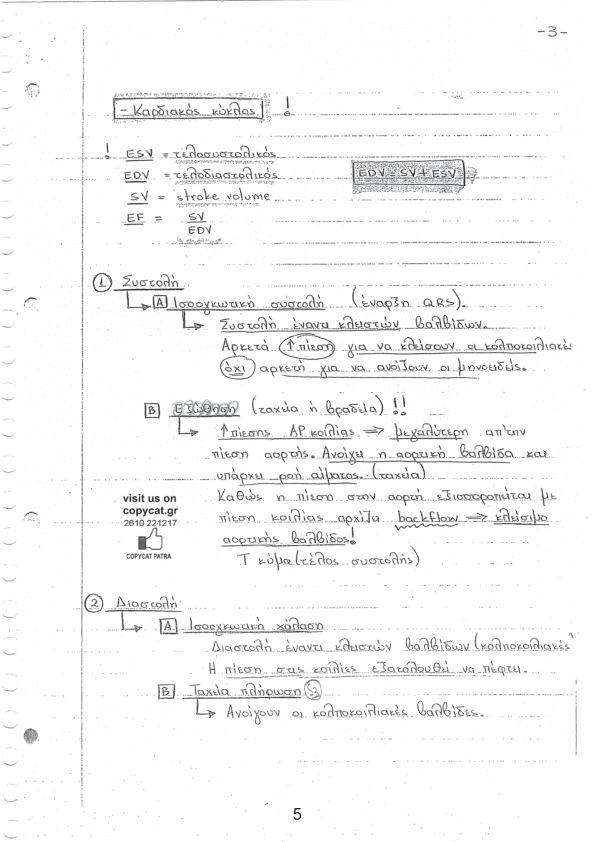 -3-
- Καρδιακός κύκλος !
! ESV = τελοσυστολικός
EDV = τελοδιαστολικός
EDV = SV + ESV
SV = stroke volume
EF = SV
EDV
① Συστολή
A Ισοογκωτική συστολή (έναρξη QRS).
Συστολή έναντι κλειστών βαλβίδων.
Αρκετά ↑πίεση για να κλείσουν οι κολποκοιλιακές
όχι αρκετή για να ανοίξουν οι μηνοειδείς.
B Εξώθηση (ταχεία ή βραδεία) !!
↑πίεσης ΑΡ κοιλίας ⇒ μεγαλύτερη απ'την
πίεση αορτής. Ανοίγει η αορτική βαλβίδα και
υπάρχει ροή αίματος. (ταχεία)
Καθώς η πίεση στην αορτή εξισορροπείται με
πίεση κοιλίας αρχίζει backflow ⇒ κλείσιμο
αορτικής βαλβίδος!
Τ κύμα (τέλος συστολής)
visit us on
copycat.gr
2610 221217
COPYCAT PATRA
② Διαστολή
A Ισοογκωτική χάλαση
Διαστολή έναντι κλειστών βαλβίδων (κολποκοιλιακές)
Η πίεση στις κοιλίες εξακολουθεί να πέφτει.
B Ταχεία πλήρωση S3
Ανοίγουν οι κολποκοιλιακές βαλβίδες.
5